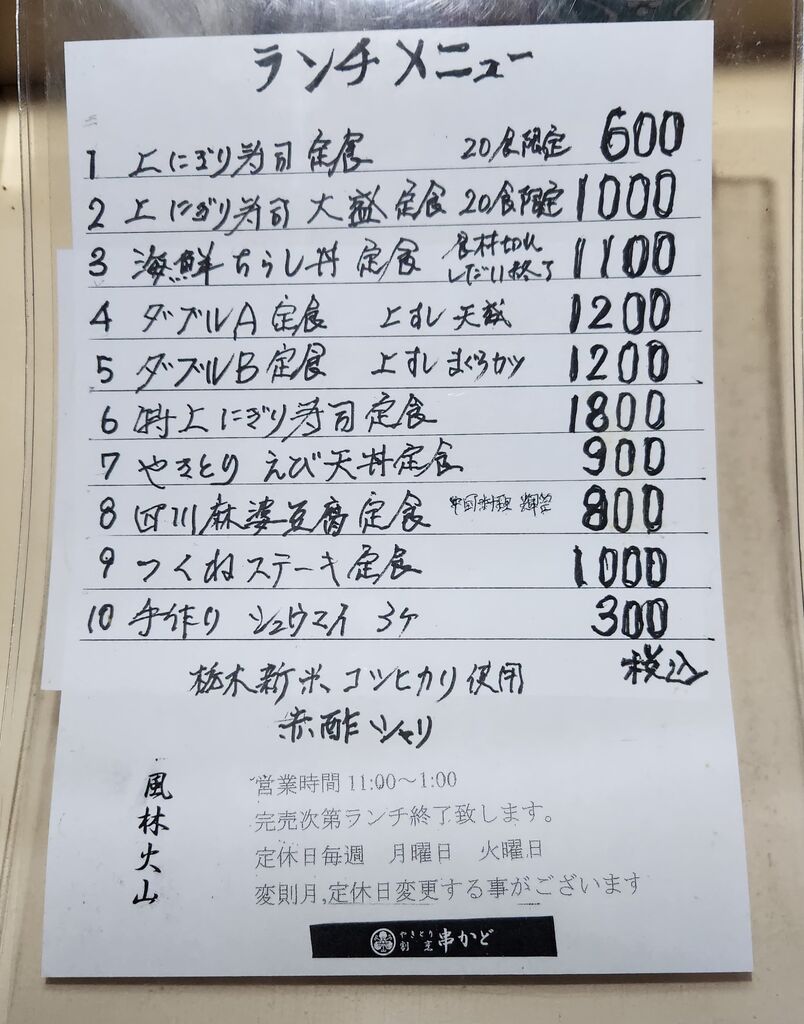 ランチメニュー
1 上にぎり寿司定食 20食限定 600
2 上にぎり寿司 大盛定食 20食限定 1000
3 海鮮ちらし丼 定食 食材切れしだい終了 1100
4 ダブルA定食 上すし 天盛 1200
5 ダブルB定食 上すし まぐろカツ 1200
6 特上にぎり寿司定食 1800
7 やきとり えび天丼定食 900
8 四川麻婆豆腐定食 中国料理 800
9 つくねステーキ定食 1000
10 手作り シュウマイ 3ケ 300
税込
栃木新米、コシヒカリ使用
赤酢シャリ
風林火山
営業時間 11:00～1:00
完売次第ランチ終了致します。
定休日毎週 月曜日 火曜日
変則月,定休日変更する事がございます
やきとり 割烹 串かど